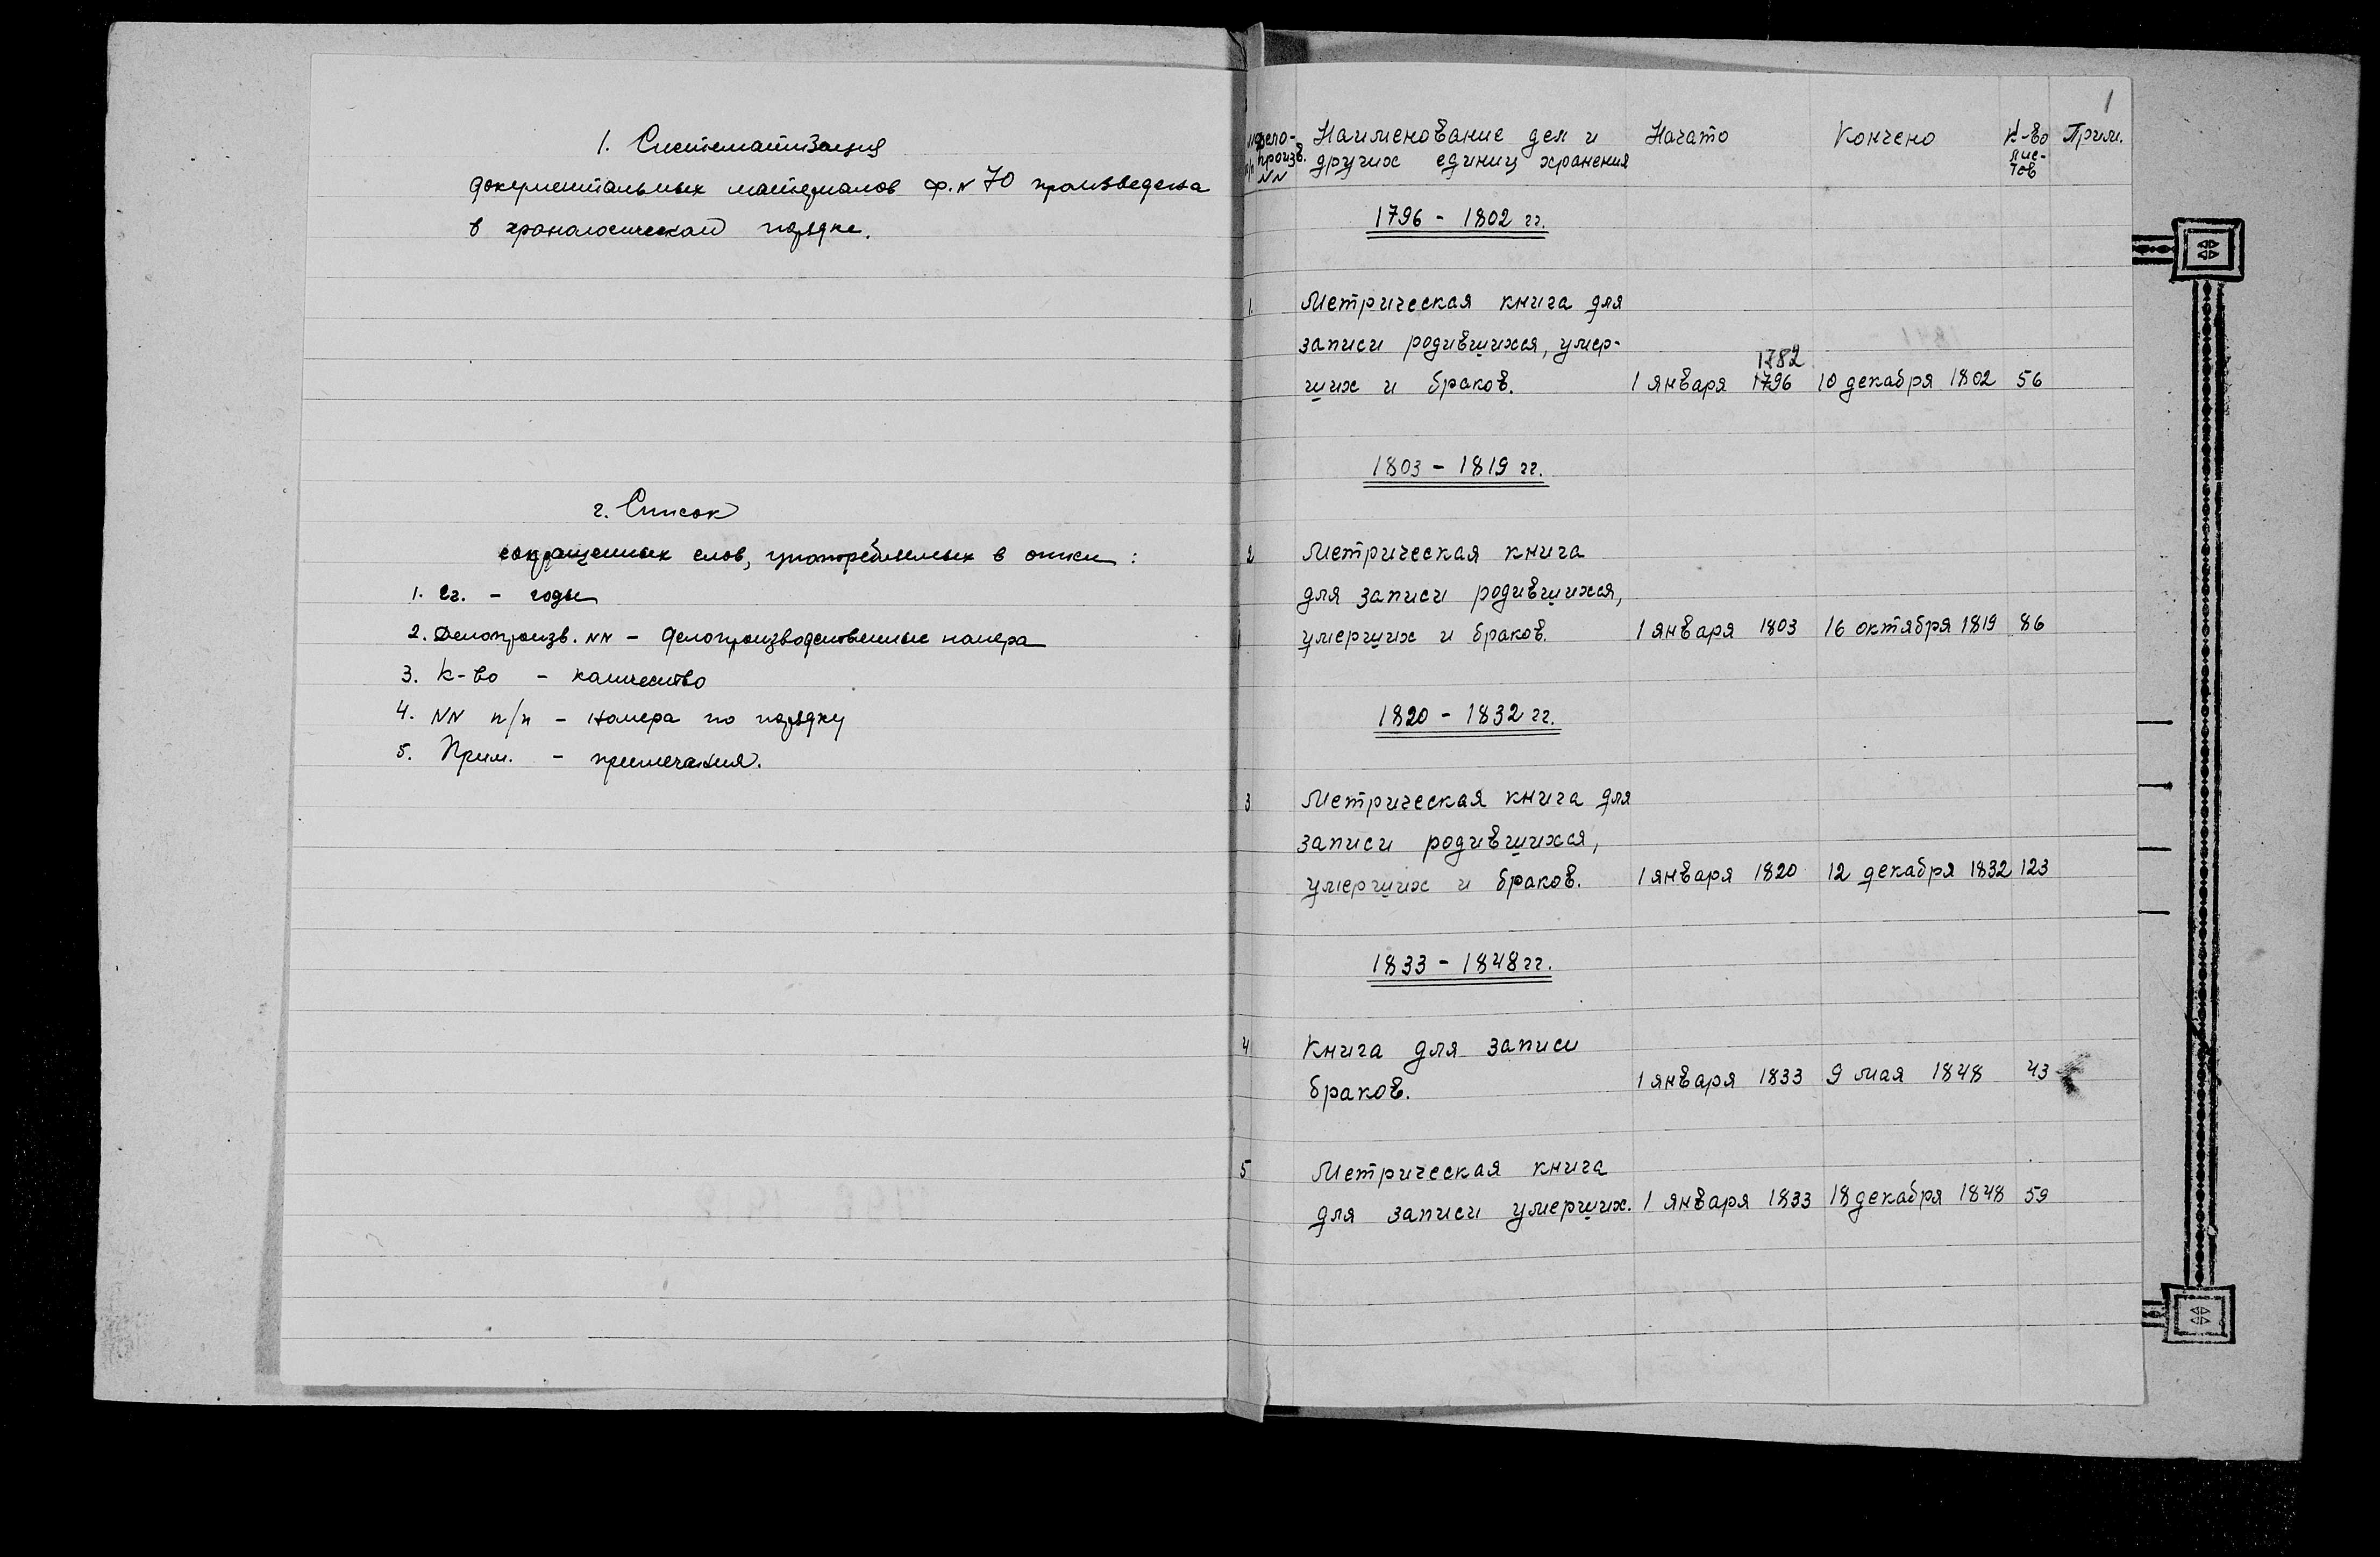 1. Систематизация
документальных материалов ф. N 70 произведена
в хронологическом порядке.
2. Список
сокращенных слов, употребляемых в описи:
1. гг. - годы
2. Делопроизв. NN - делопроизводственные номера
3. К-во - количество
4. NN п/п - номера по порядку
5. Прим. - примечания.
1
Дело- Наименование дел и Начато Кончено К-во Прим.
произв. других единиц хранения лис-
п/п NN тов
1796 - 1802 гг.
1. Метрическая книга для
записи родившихся, умер-
1782
ших и браков. 1 января 1796 10 декабря 1802 56
1803 - 1819 гг.
2 Метрическая книга
для записи родившихся,
умерших и браков. 1 января 1803 16 октября 1819 86
1820 - 1832 гг.
3 Метрическая книга для
записи родившихся,
умерших и браков. 1 января 1820 12 декабря 1832 123
1833 - 1848 гг.
4 Книга для записи
браков. 1 января 1833 9 мая 1848 43
5 Метрическая книга
для записи умерших. 1 января 1833 18 декабря 1848 59